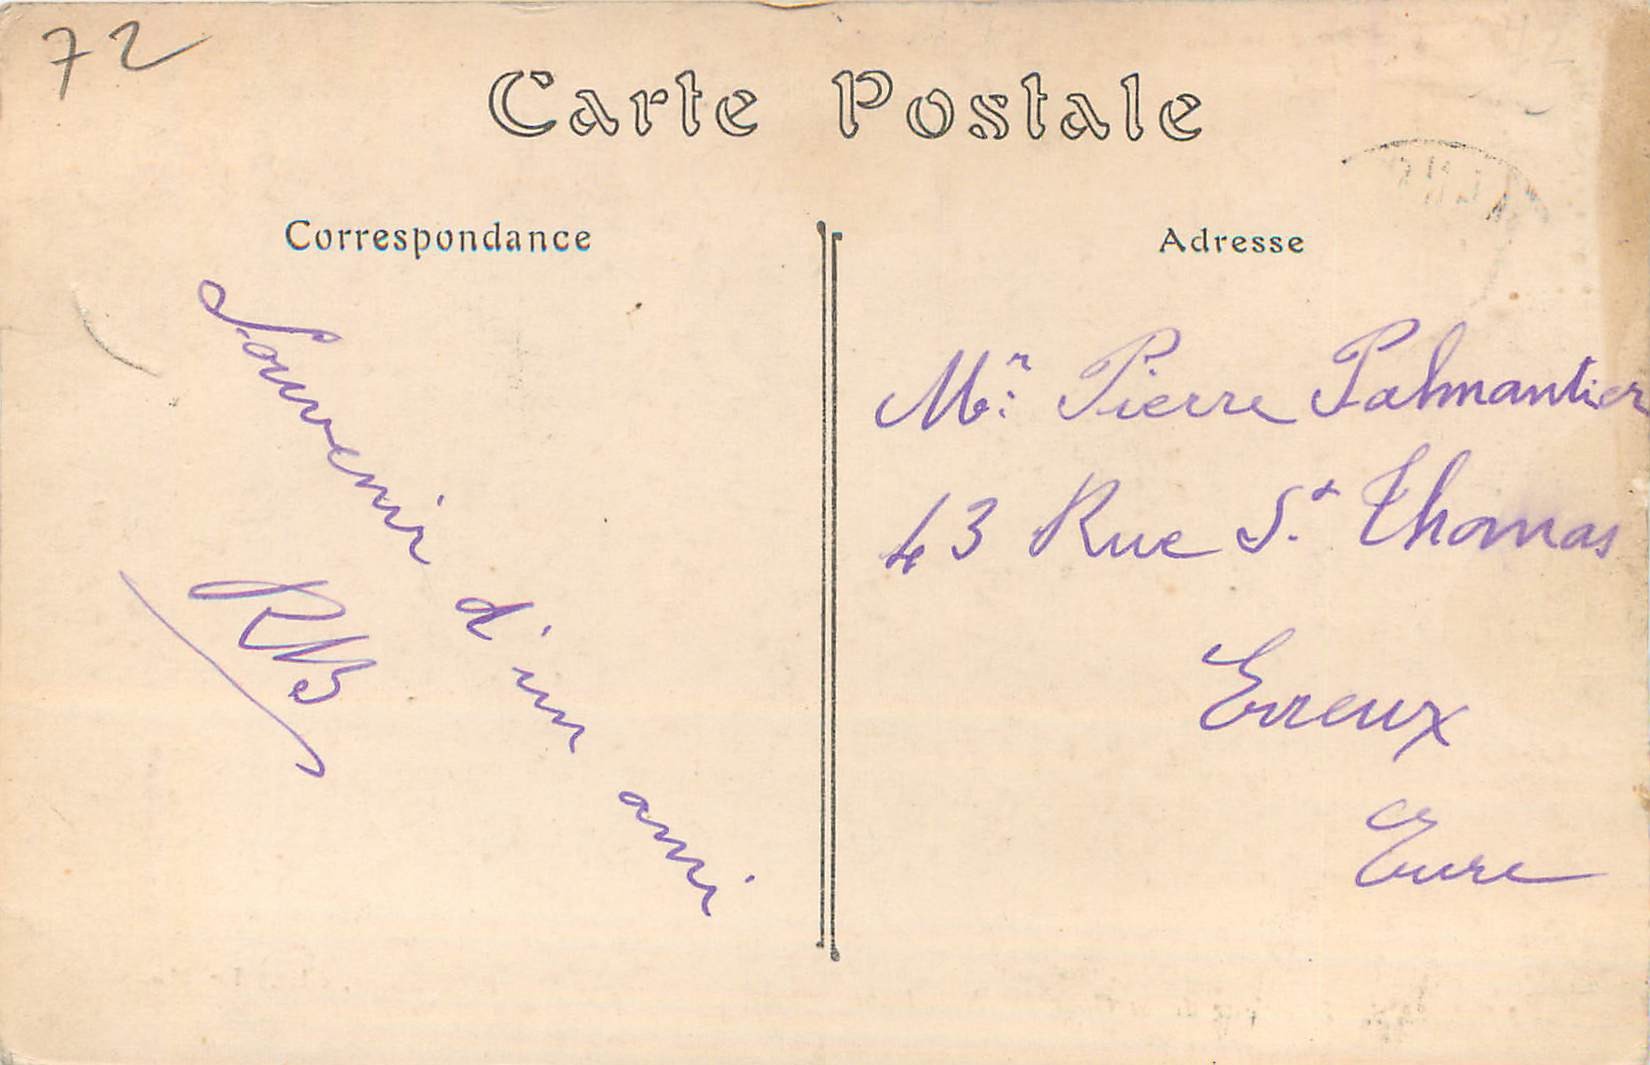 72
Carte Postale
Correspondance
Souvenir d'un ami
RB
Adresse
Mr. Pierre Palmantier
43 Rue St Thomas
Evreux
Eure